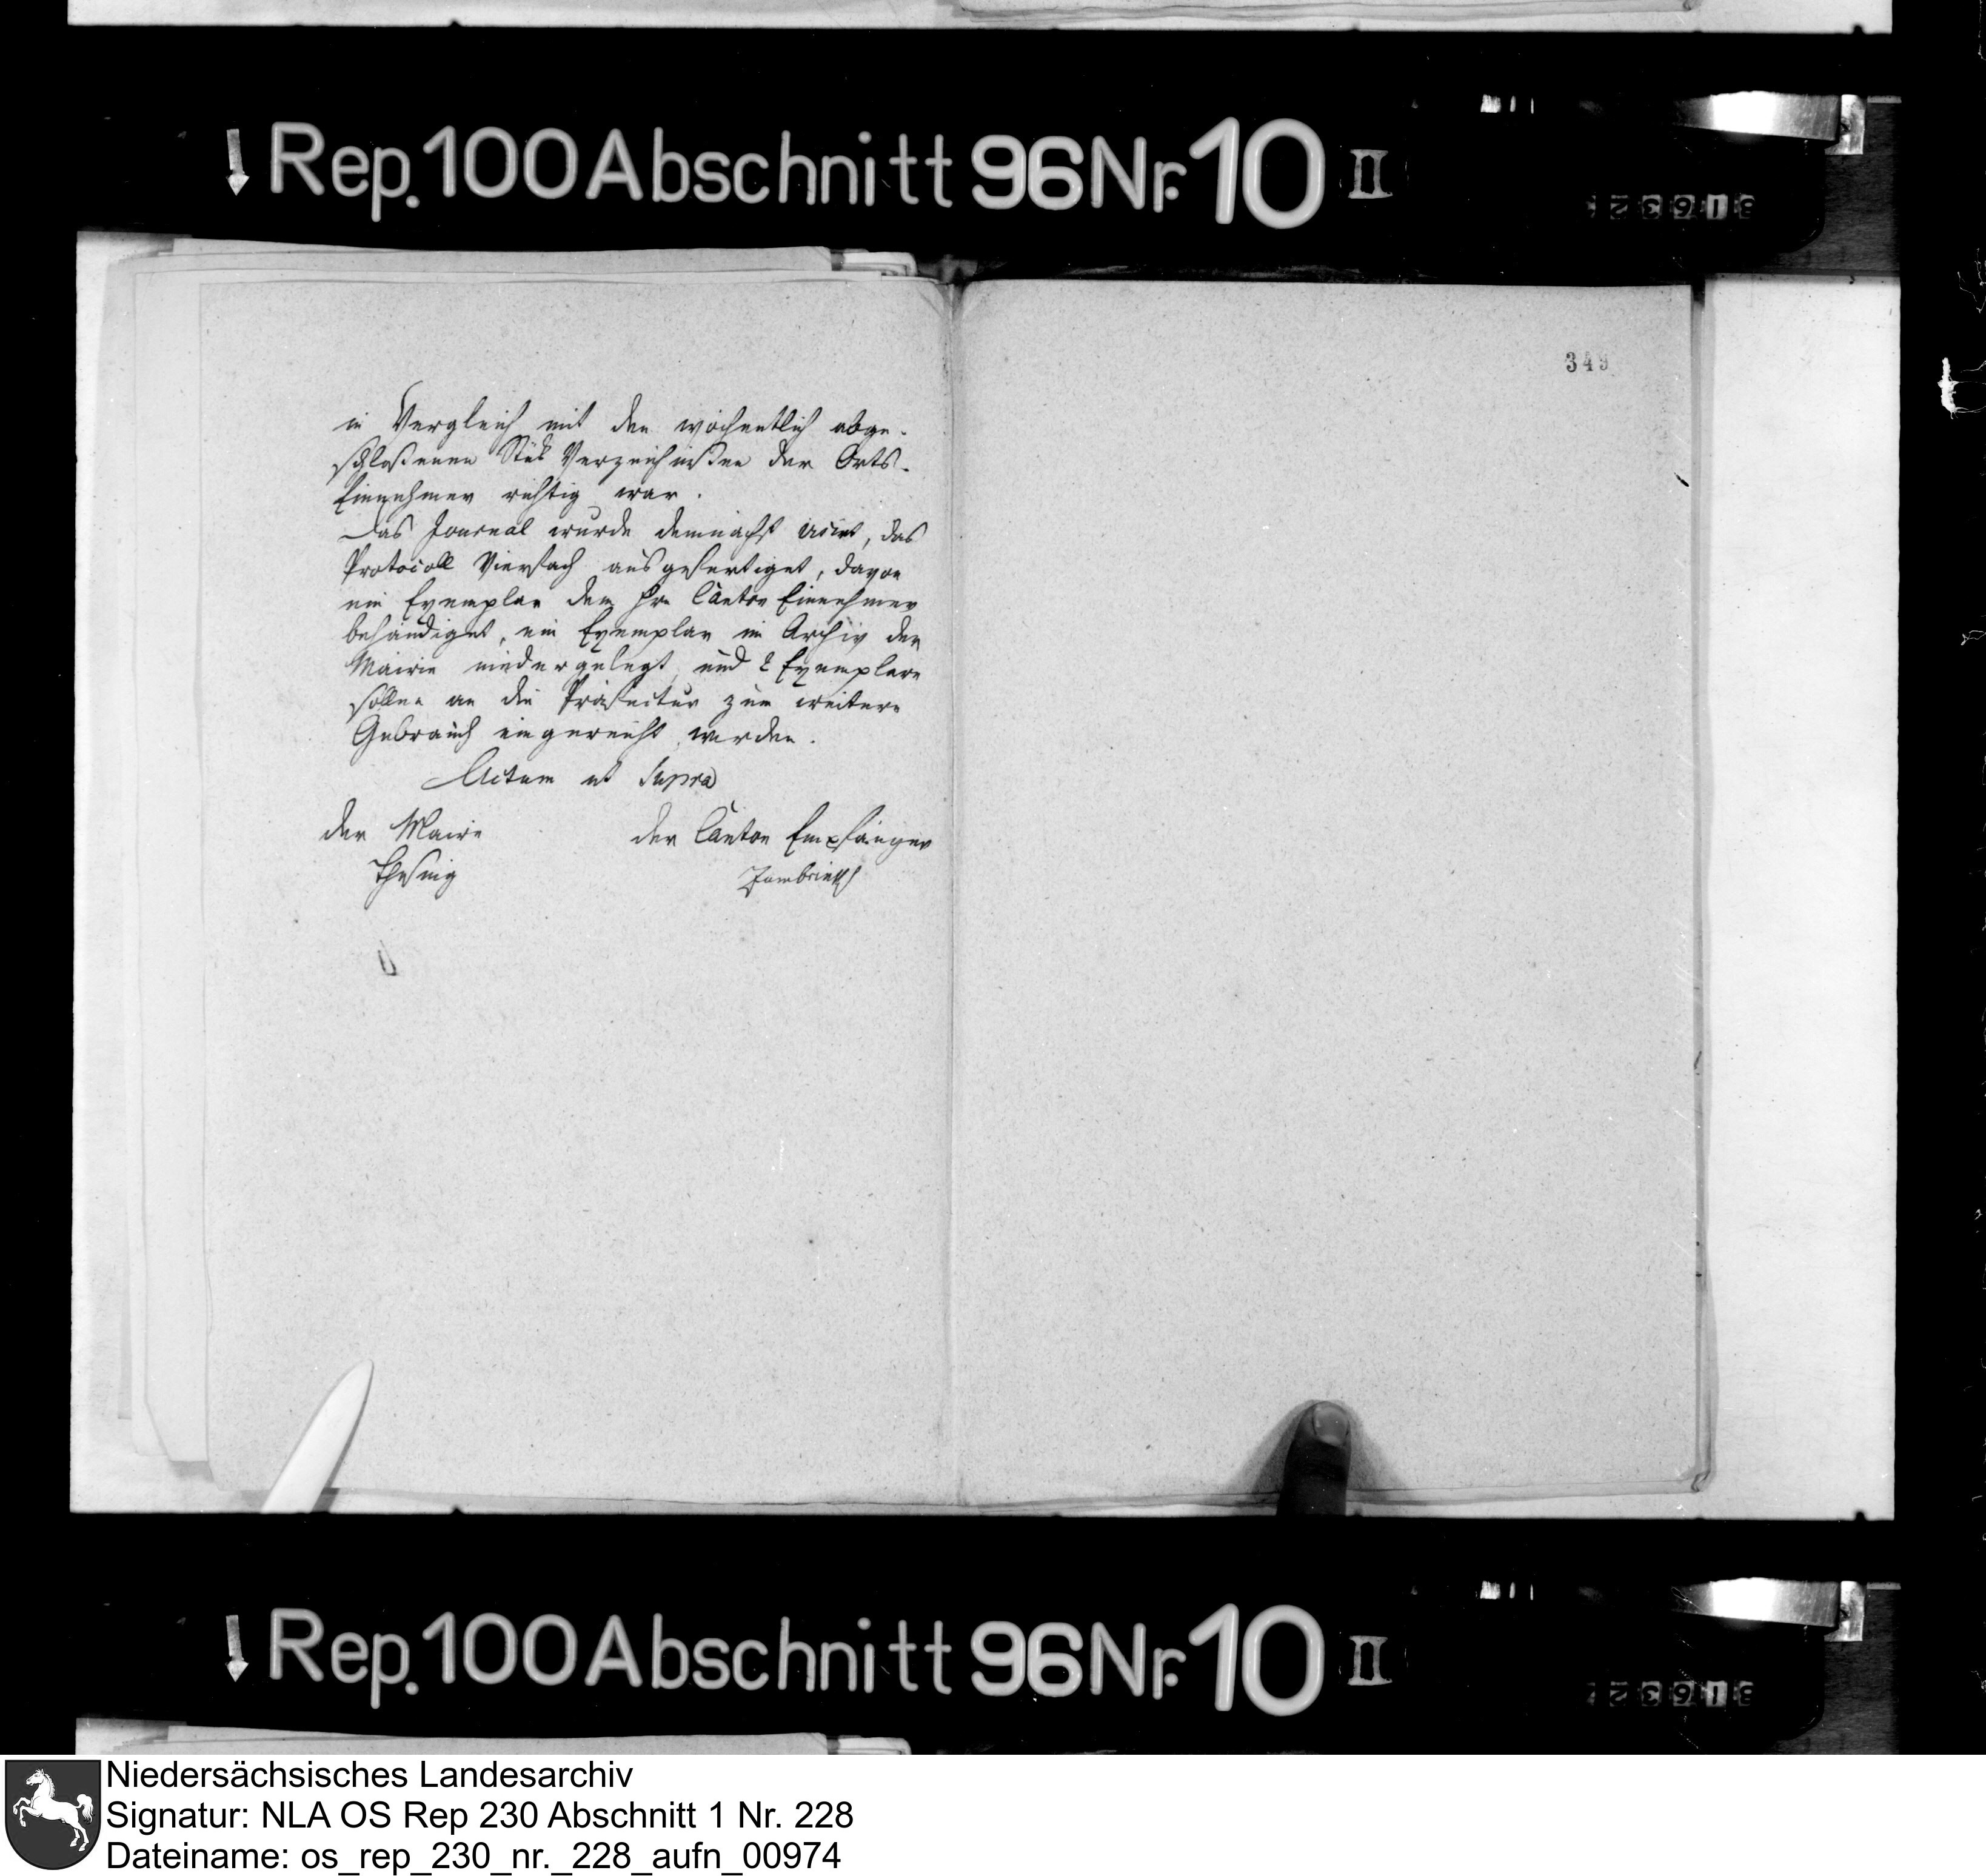 Rep. 100 Abschnitt 96 Nr. 10 II
349
in Vergleich mit den wöchentlich abge-
schloßenen Verzeichnißen der Orts-
Einnehmer richtig war.
Das Journal wurde demnächst visirt, das
Protocoll Vierfach ausgefertiget, davon
ein Exemplar dem Hrn Canton Einnehmer
behändiget, ein Exemplar im Archiv der
Mairie niedergelegt, und 2 Exemplare
sollen an die Präfectur zum weitern
Gebrauch eingereicht werden.
Actum ut Supra
der Maire der Canton Empfänger
Thesing
Rep. 100 Abschnitt 96 Nr. 10 II
Niedersächsisches Landesarchiv
Signatur: NLA OS Rep 230 Abschnitt 1 Nr. 228
Dateiname: os_rep_230_nr._228_aufn_00974